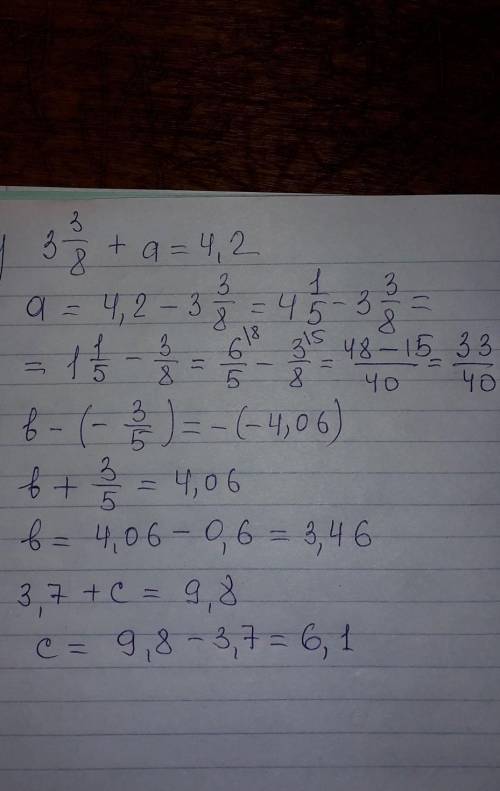 ) 3 3/8 + a = 4,2
a = 4,2 − 3 3/8 = 4 1/5 − 3 3/8 =
= 1 1/5 − 3/8 = 6\8/5 − 3\5/8 = 48 − 15/40 = 33/40
в − (− 3/5) = −(−4,06)
в + 3/5 = 4,06
в = 4,06 − 0,6 = 3,46
3,7 + c = 9,8
c = 9,8 − 3,7 = 6,1